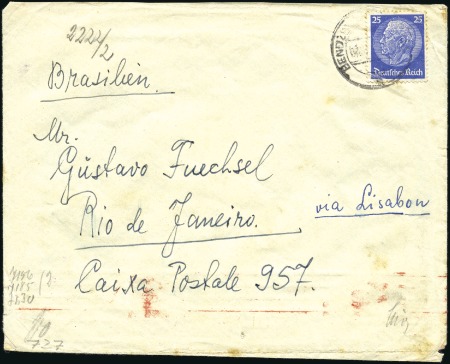 2222/2
25 25
Deutsches Reich
Brasilien.
Mr.
Gustavo Fuechsel
Rio de Janeiro.
via Lisabon
Caixa Postale 957.
727